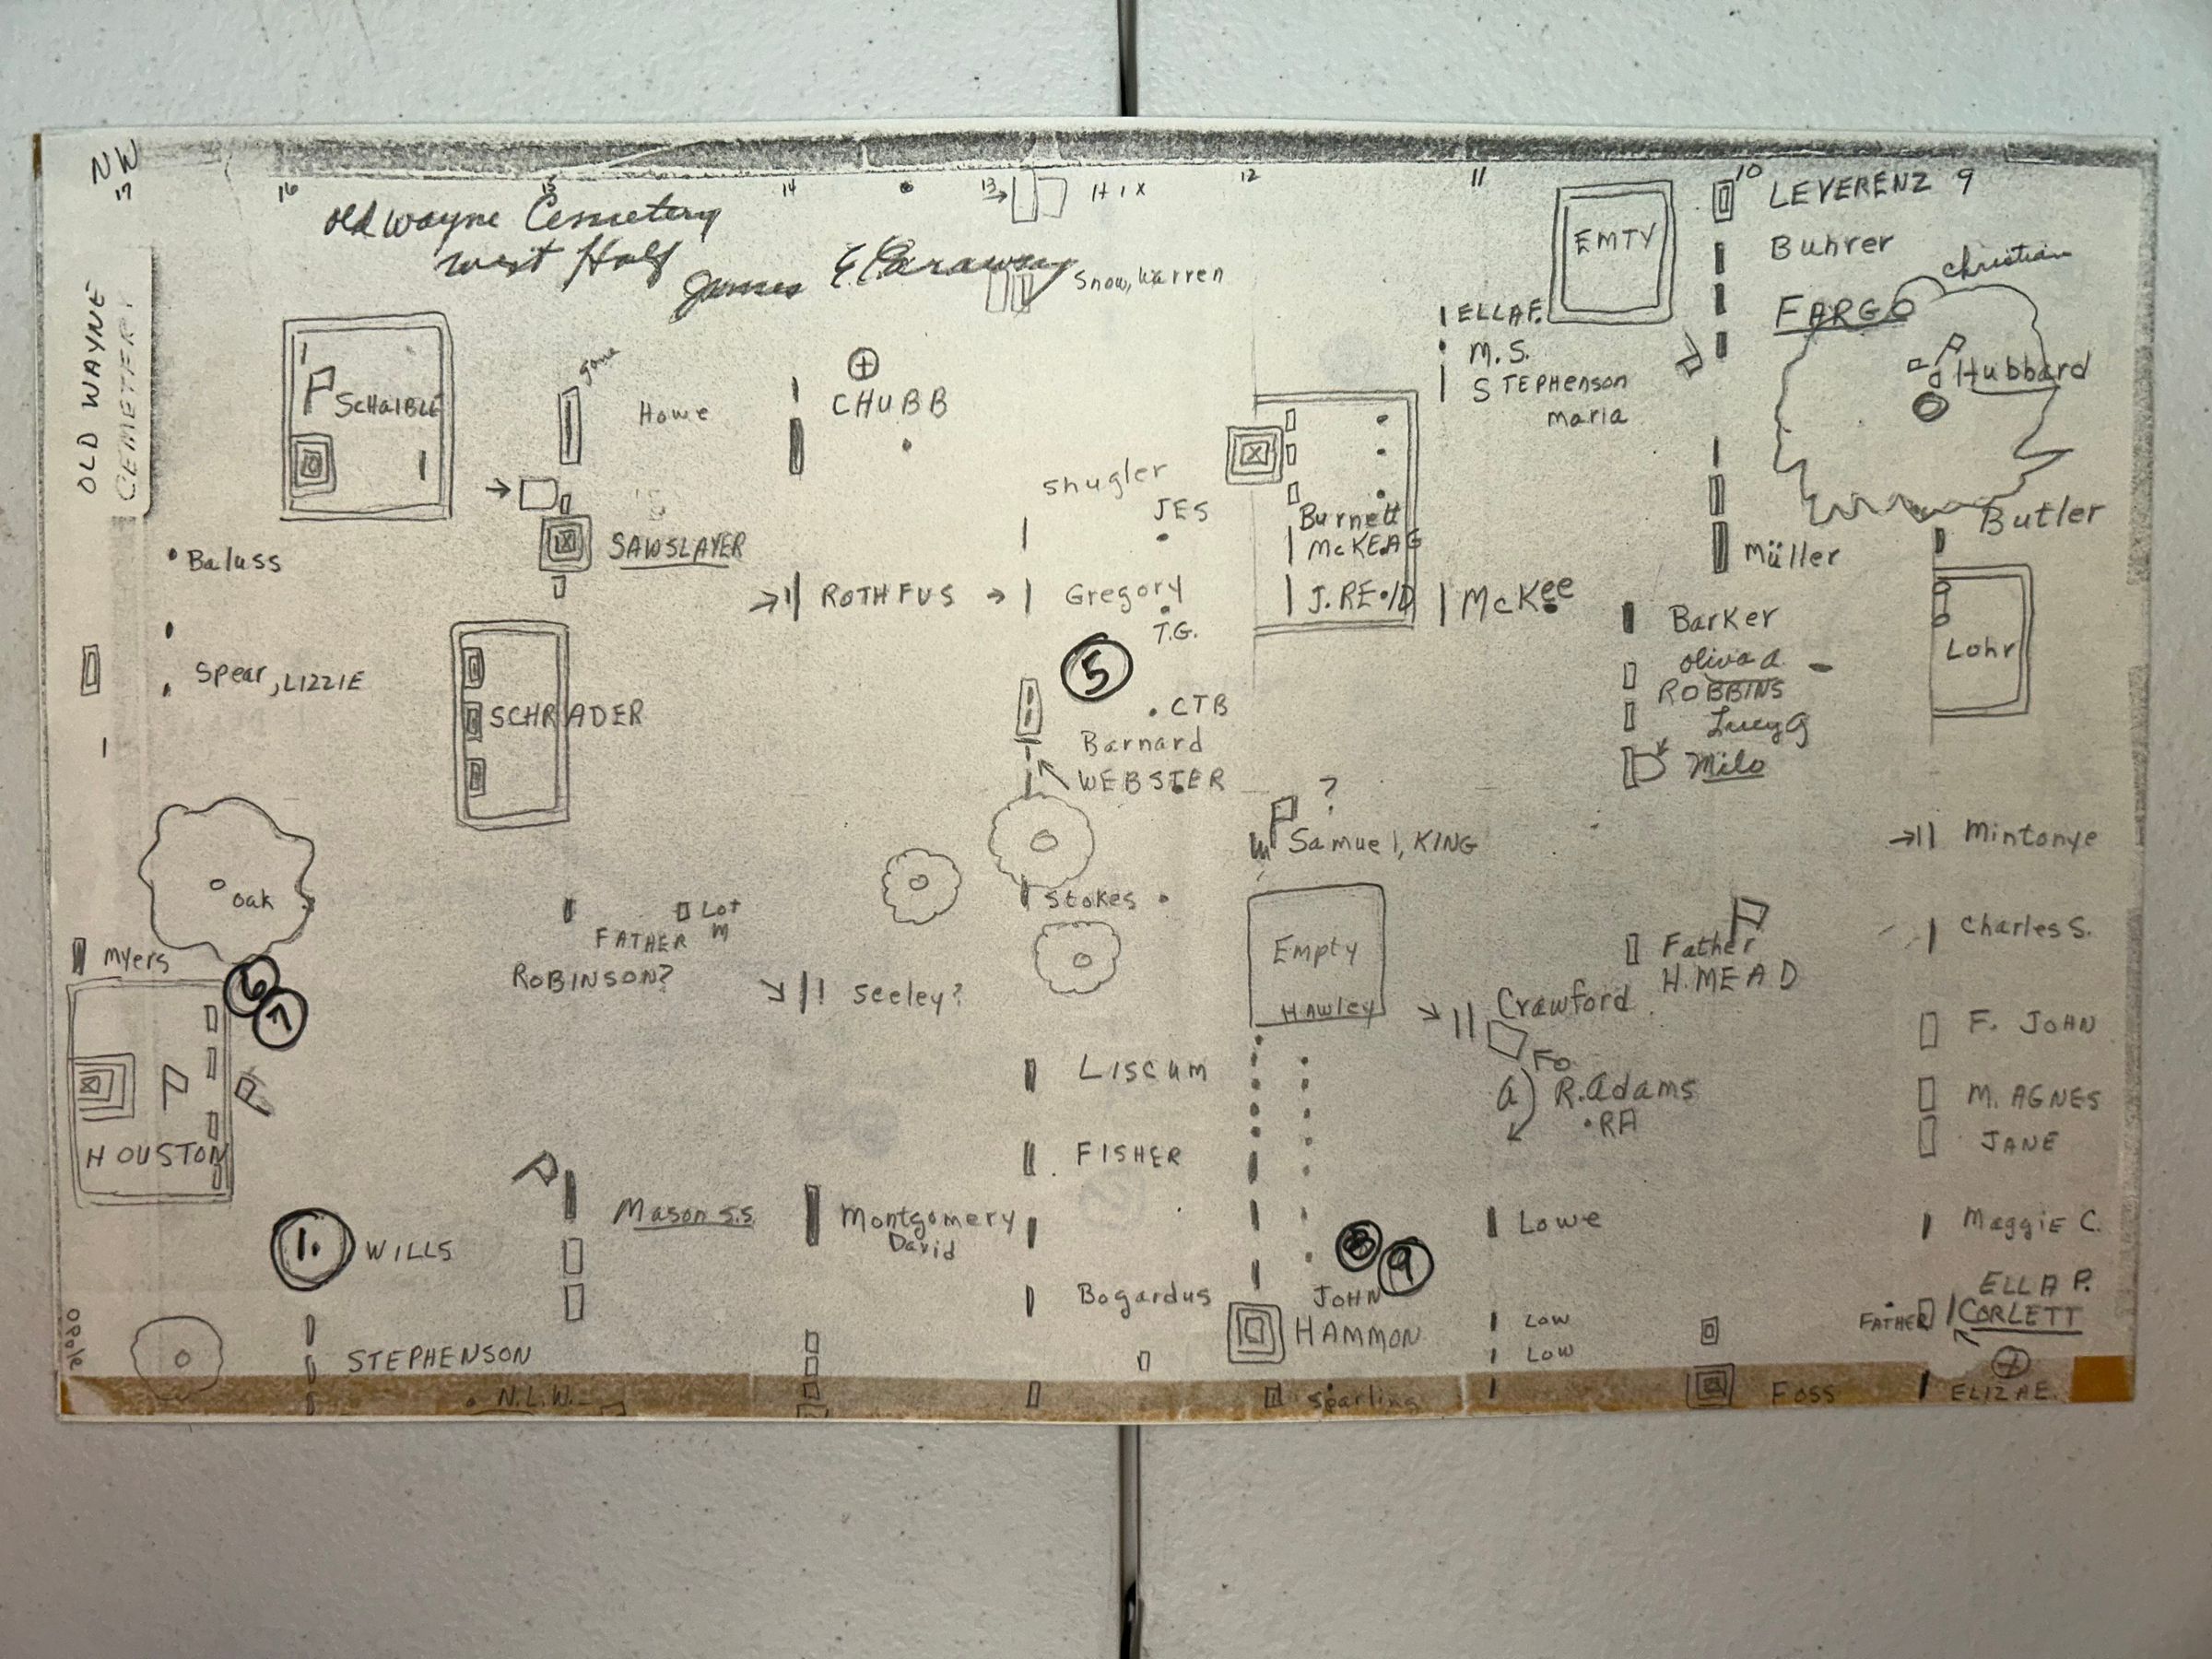 NW
17
16
15
14
13
H I X
12
11
10
LEVERENZ 9
OLD WAYNE
CEMETERY
Old Wayne Cemetery
West Half
James E Caraway
Snow, Warren
EMTY
Buhrer
christian
FARGO
Hubbard
ELLA F.
M.S.
STEPHENSON
maria
SCHAIBLE
Jane
Howe
CHUBB
Shugler
JES
Burnett
McKEAG
J. REID
McKee
Butler
Müller
SAWSLAYER
Baluss
ROTHFUS
Gregory
T.G.
Barker
Oliva a.
ROBBINS
Lucy G
Milo
Lohr
Spear, LIZZIE
SCHRADER
5
CTB
Barnard
WEBSTER
?
Samuel, KING
Mintonye
oak
Stokes
Lot
m
FATHER
ROBINSON?
Myers
6
7
Seeley?
Empty
Hawley
Father
H. MEAD
Charles S.
Crawford
Fo
a
R. Adams
RA
F. JOHN
M. AGNES
JANE
LISCUM
HOUSTON
FISHER
Mason S.S.
Montgomery
David
Lowe
Maggie C.
1.
WILLS
8
9
Bogardus
JOHN
HAMMON
Low
Low
ELLA P.
FATHER
CORLETT
STEPHENSON
N.L.W.
Sparling
Foss
ELIZAE.